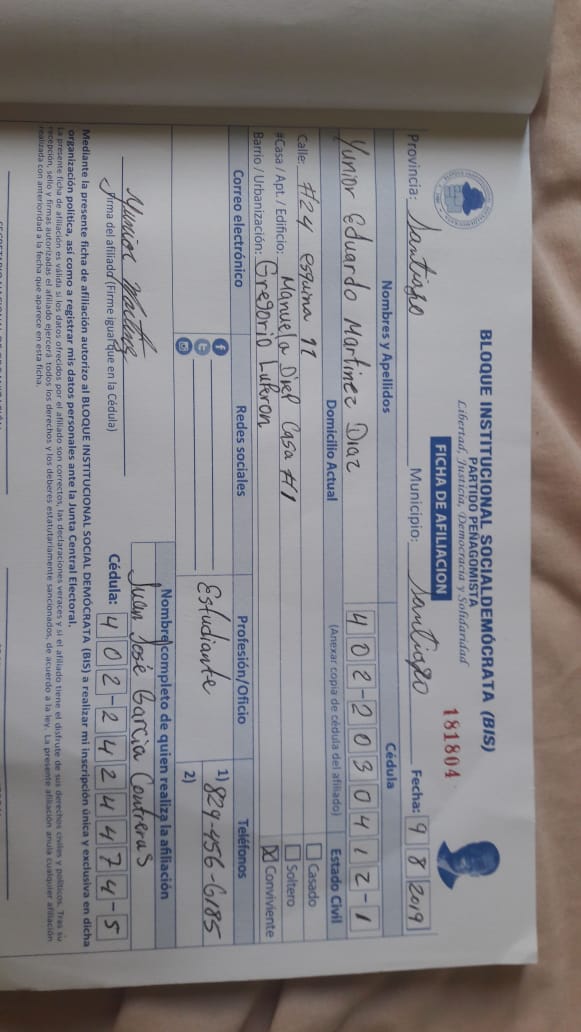 BLOQUE INSTITUCIONAL SOCIALDEMÓCRATA (BIS)
PARTIDO PEÑAGOMISTA
Libertad, Justicia, Democracia y Solidaridad
FICHA DE AFILIACION
181804
Provincia: Santiago Municipio: Santiago Fecha: 9 8 2019
Nombres y Apellidos Cédula
Yunior Eduardo Martinez Diaz 402-2030412-1
Domicilio Actual (Anexar copia de cédula del afiliado) Estado Civil
Calle: #24 esquina 11 Casado
#Casa / Apt. / Edificio: Manuela Diel Casa #1 Soltero
Barrio / Urbanización: Gregorio Luperon Conviviente
Correo electrónico Redes sociales Profesión/Oficio Teléfonos
Estudiante 1) 829-456-6185
2)
Nombre completo de quien realiza la afiliación
Juan José Garcia Contreras
Yunior Martinez
Firma del afiliado (Firme igual que en la Cédula) Cédula: 402-2424474-5
Mediante la presente ficha de afiliación autorizo al BLOQUE INSTITUCIONAL SOCIAL DEMÓCRATA (BIS) a realizar mi inscripción única y exclusiva en dicha
organización política, así como a registrar mis datos personales ante la Junta Central Electoral.
La presente ficha de afiliación es válida si los datos ofrecidos por el afiliado son correctos, las declaraciones veraces y si el afiliado tiene el disfrute de sus derechos civiles y políticos. Tras su
recepción, sello y firmas autorizadas el afiliado ejercerá todos los derechos y los deberes estatutariamente sancionados, de acuerdo a la ley. La presente afiliación anula cualquier afiliación
realizada con anterioridad a la fecha que aparece en esta ficha.